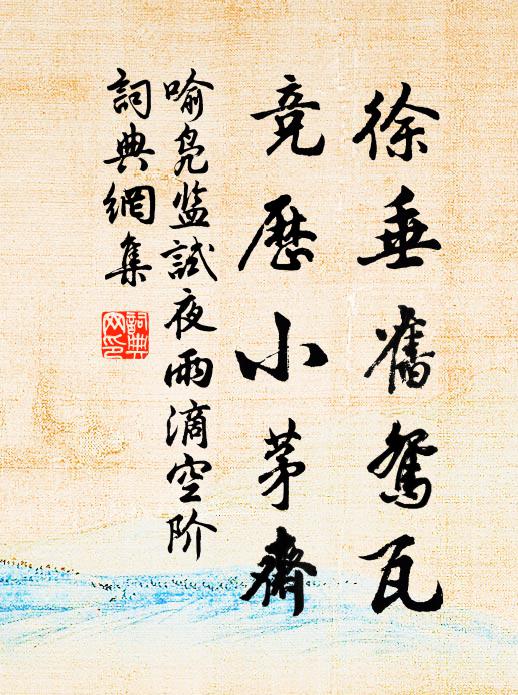 徐垂舊鴛瓦
竞歷小茅齋
喻凫监試夜雨滴空阶
詞典網集
詞典网印